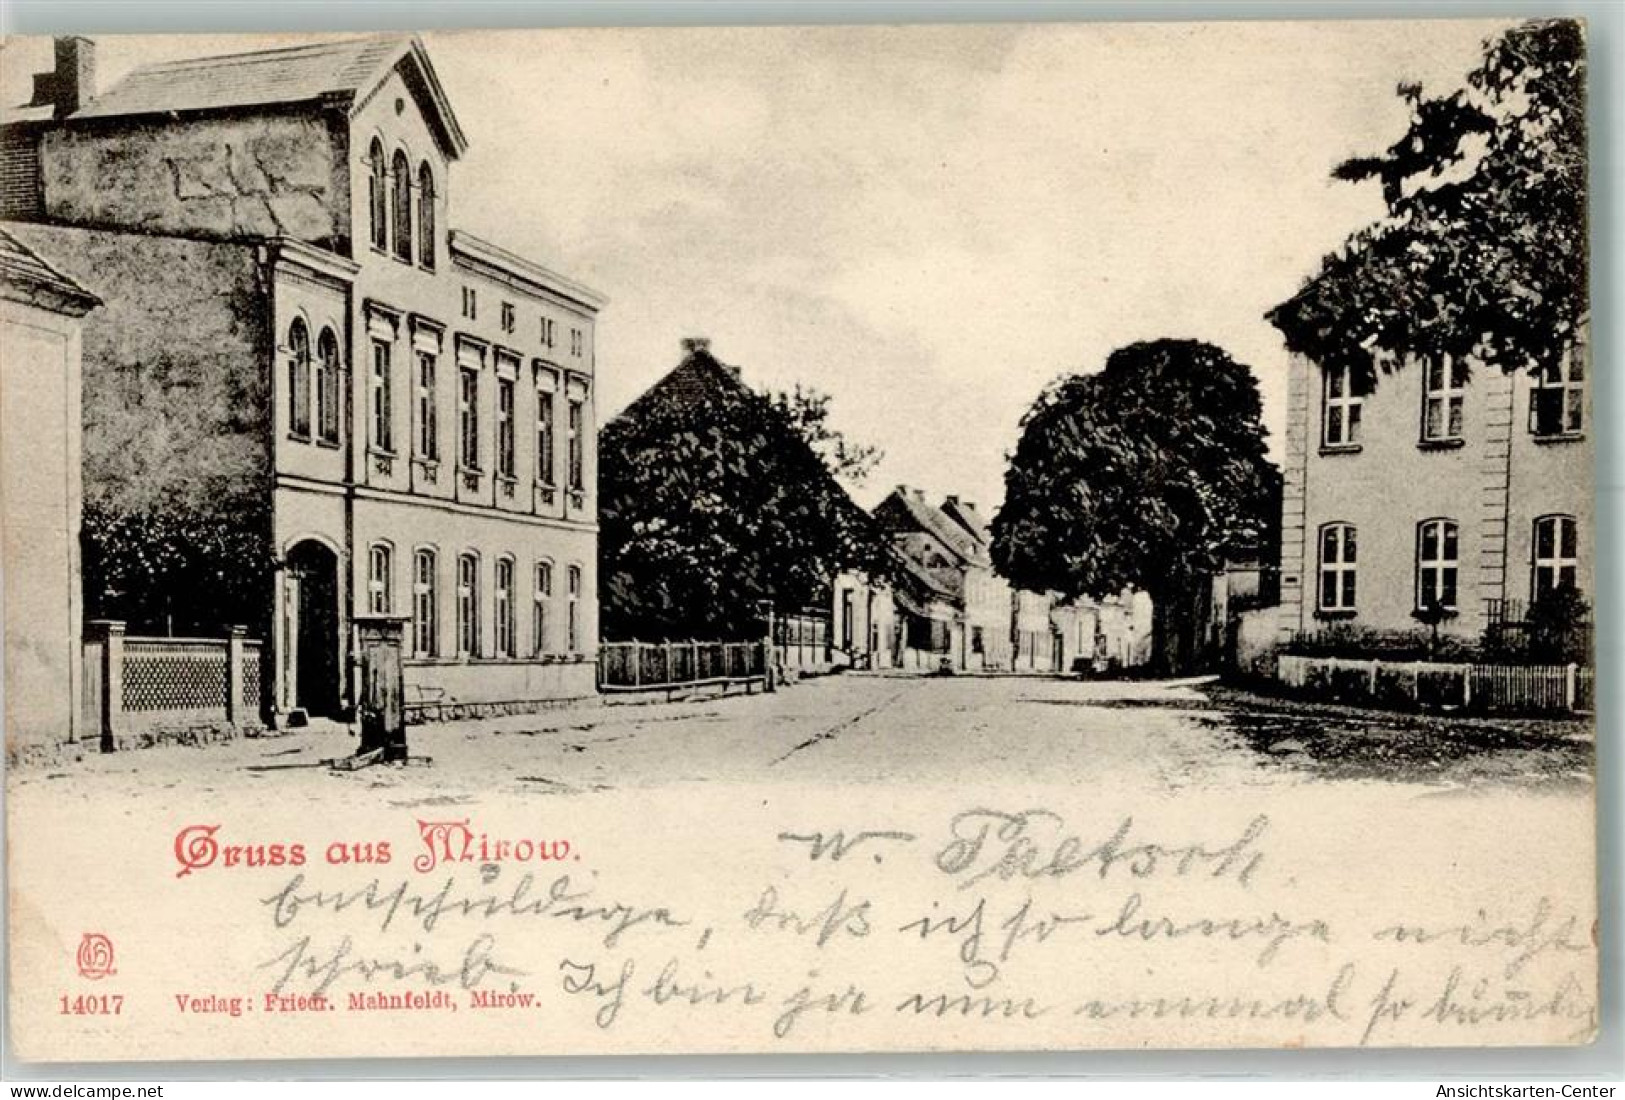 Gruss aus Mirow.
w. Paetsch.
Entschuldige, daß ich so lange nicht
schrieb. Ich bin ja nun einmal so bummlig
14017 Verlag: Friedr. Mahnfeldt, Mirow.
Ansichtskarten-Center